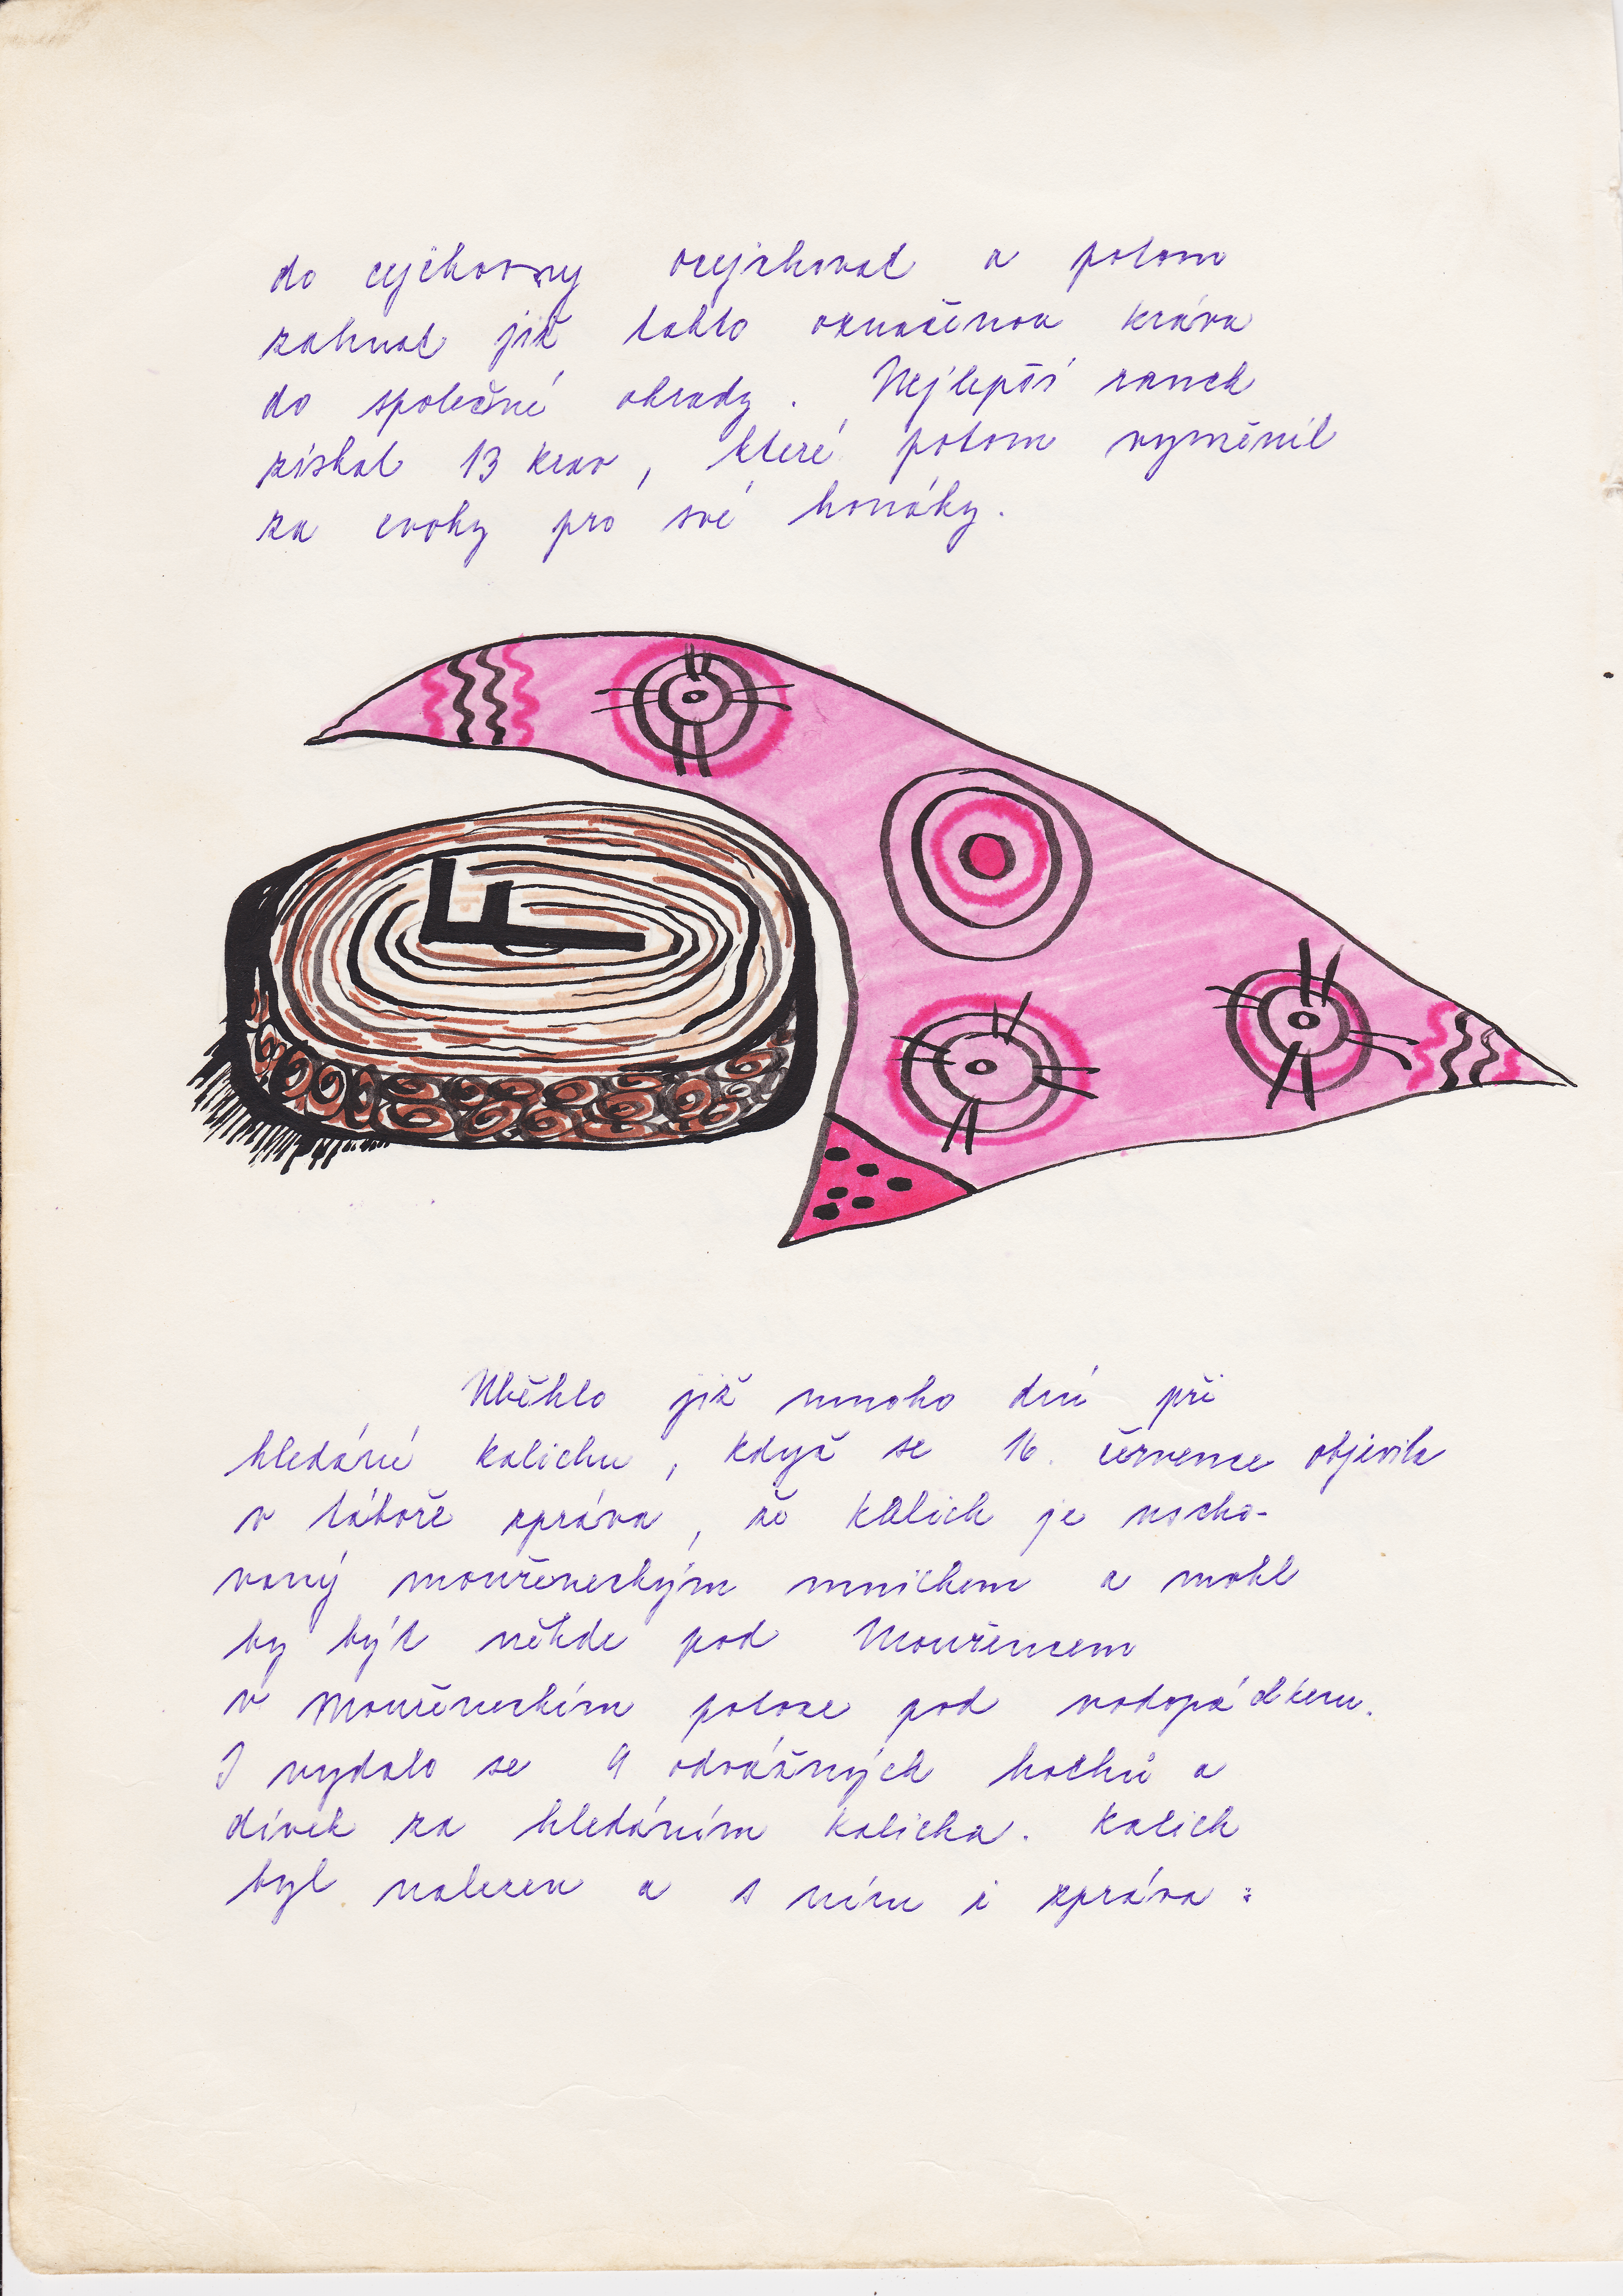 do cejchovny ocejchovat a potom
zahnat již takto označenou krávu
do společné ohrady. Nejlepší ranch
získal 13 krav, které potom vyměnil
za cvoky pro své honáky.
Uběhlo již mnoho dní při
hledání kalichu, když se 16. července objevila
v táboře zpráva, že kalich je uscho-
vaný mouřeneckým mnichem a mohl
by být někde pod Mouřencem
v Mouřeneckém potoce pod vodopádkem.
I vydalo se 9 odvážných hochů a
dívek za hledáním kalicha. Kalich
byl nalezen a s ním i zpráva: